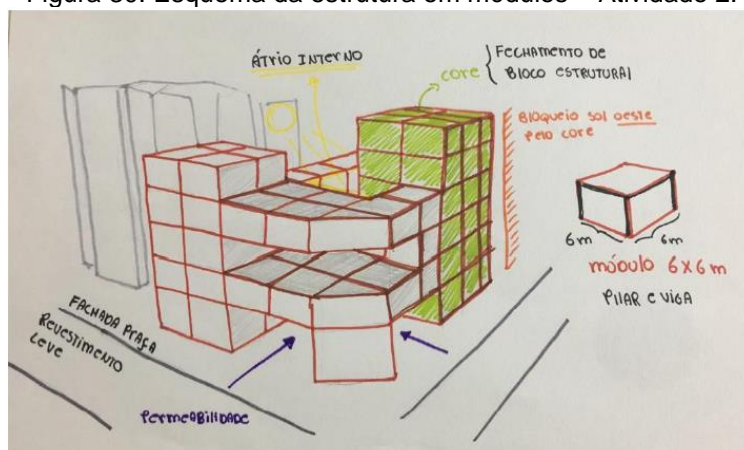 Figura 30: Esquema da estrutura em módulos – Atividade 2.
ÁTRIO INTERNO
core
FECHAMENTO DE
BLOCO ESTRUTURAL
BLOQUEIO SOL OESTE
PELO CORE
6m
6m
MÓDULO 6X6m
PILAR E VIGA
FACHADA PRAÇA
REVESTIMENTO
LEVE
PERMEABILIDADE